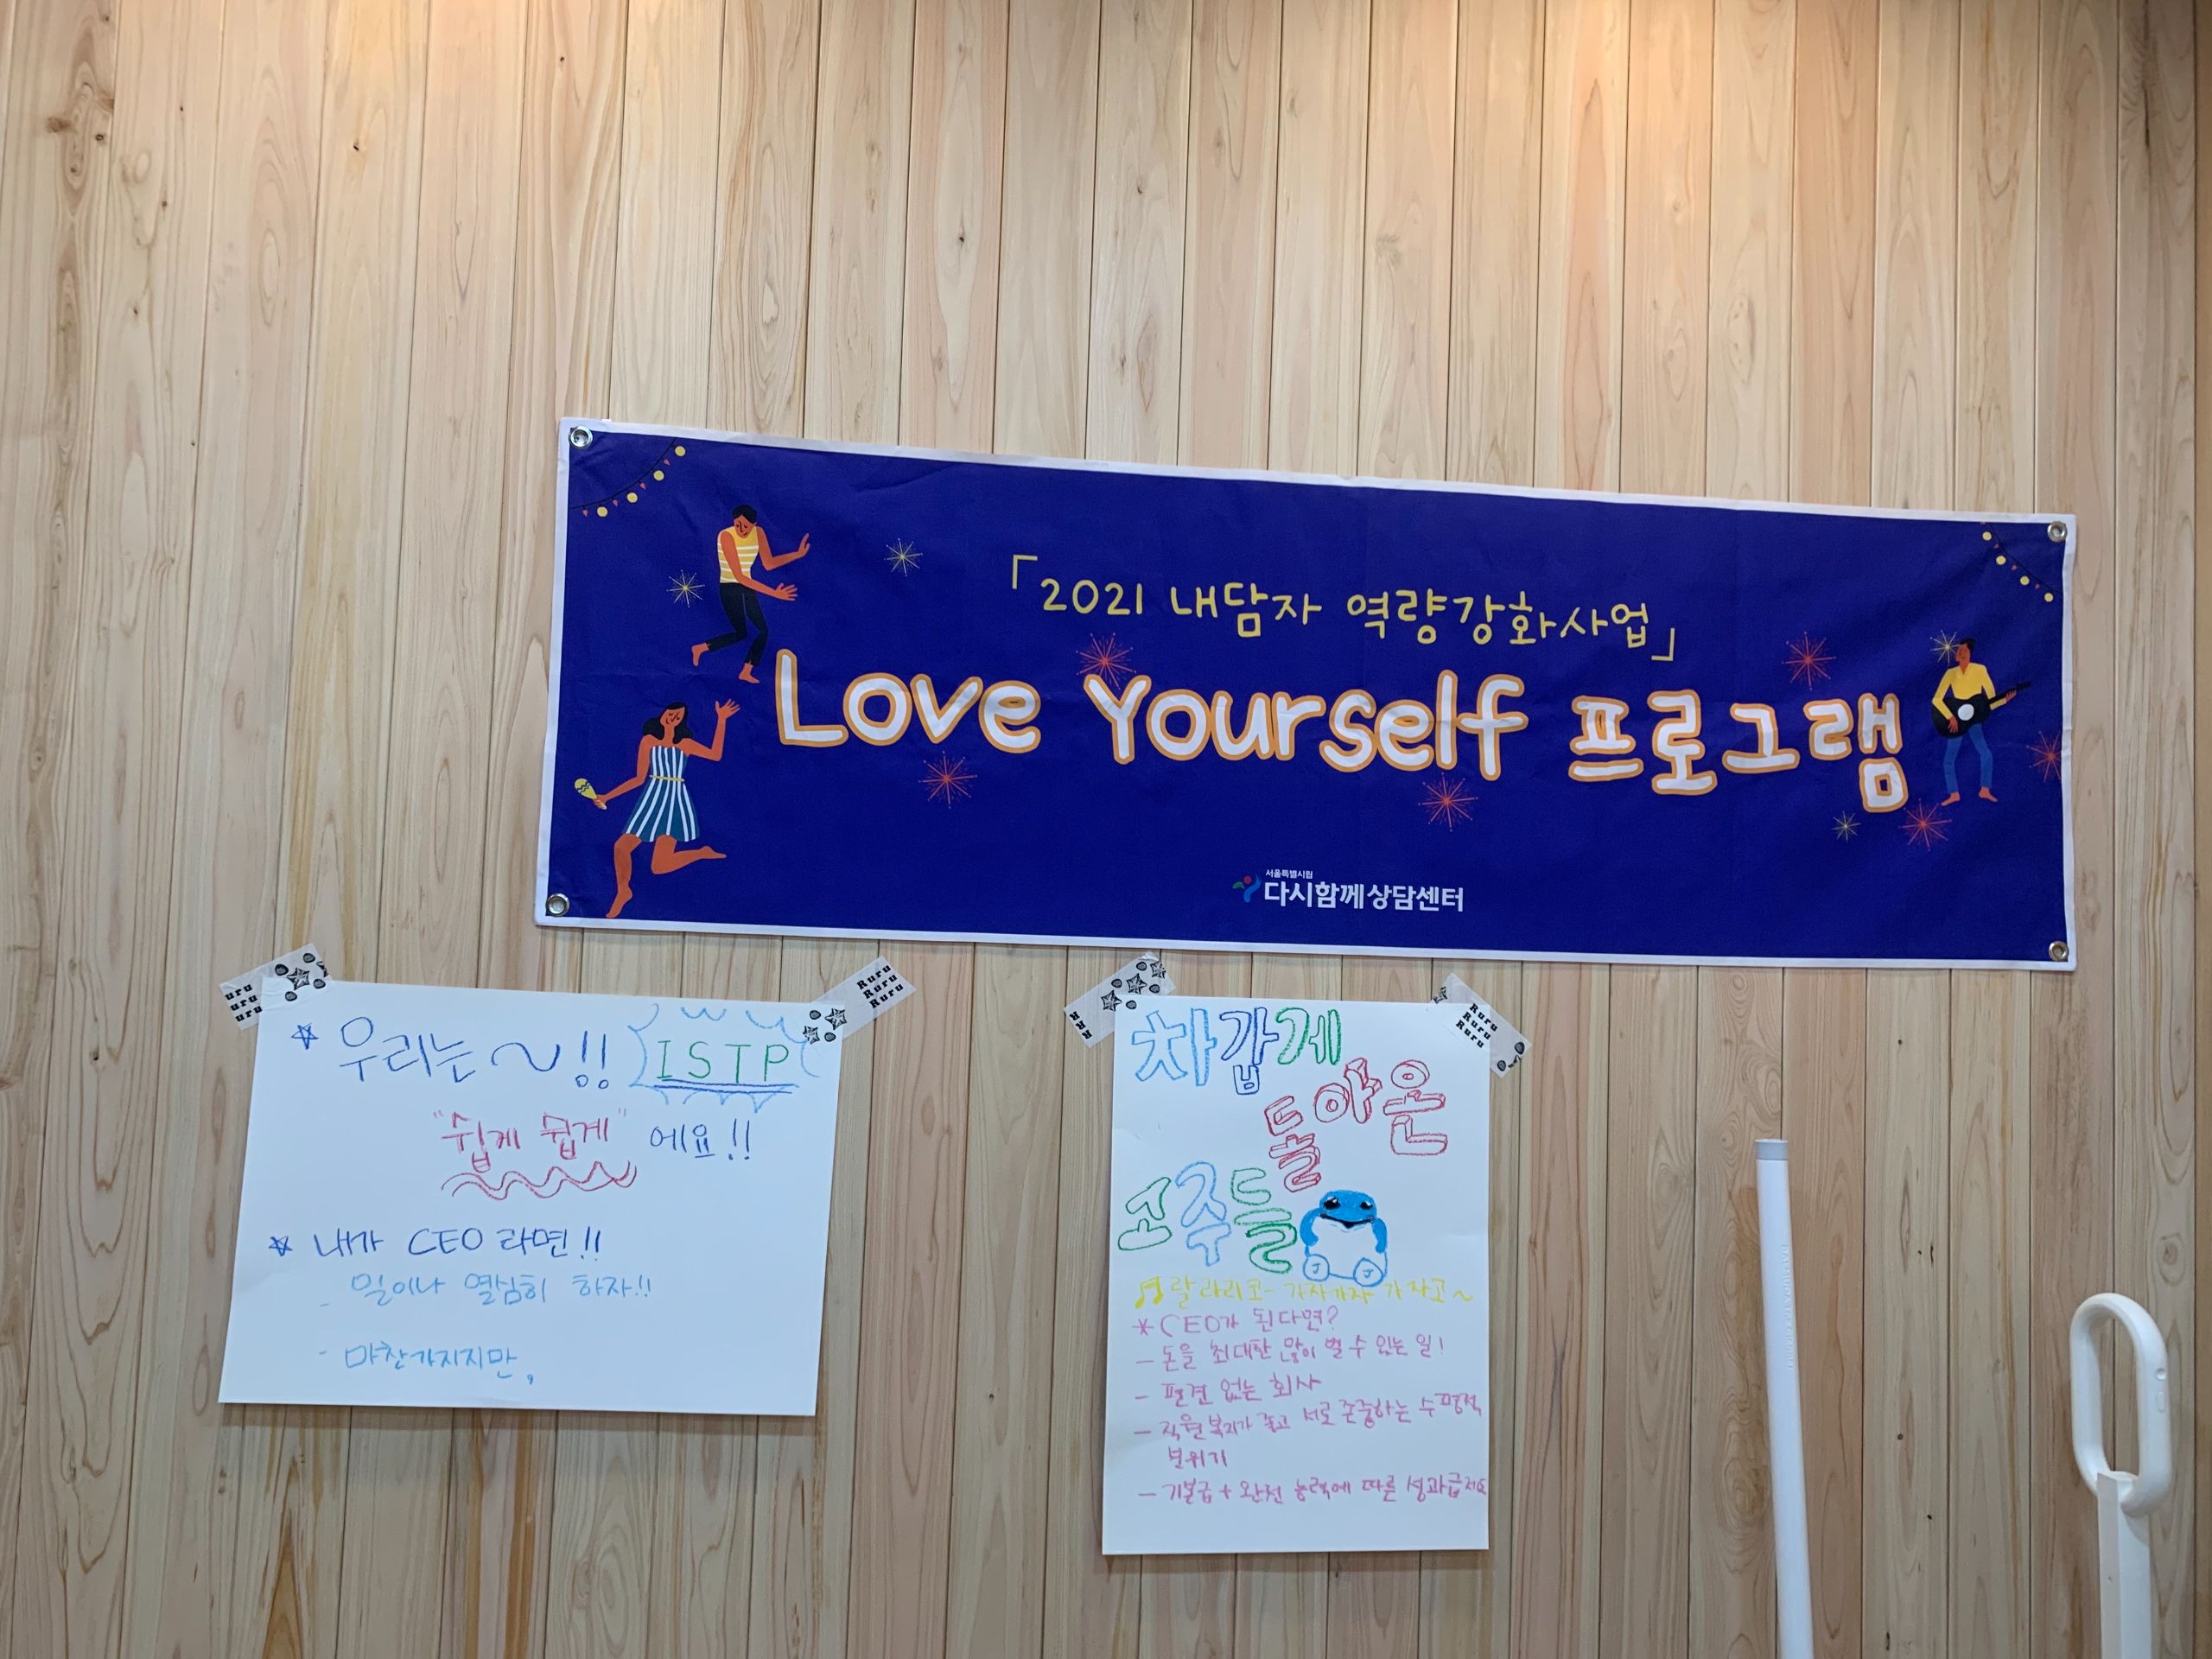 「2021 내담자 역량강화사업」
Love Yourself 프로그램
서울특별시립
다시함께상담센터
uru
uru
uru
Ruru
Ruru
Ruru
우리는 ~!! ISTP
"쉽게 쉽게" 에요!!
내가 CEO 라면!!
- 일이나 열심히 하자!!
- 마찬가지지만,
Ruru
Ruru
Ruru
차갑게
돌아온
꼬주들
랄라리꼬- 가자가자 가자고~
* CEO가 된다면?
- 돈을 최대한 많이 벌 수 있는 일!
- 편견 없는 회사
- 직원복지가 좋고 서로 존중하는 수평적
분위기
- 기본급 + 완전 능력에 따른 성과급제요